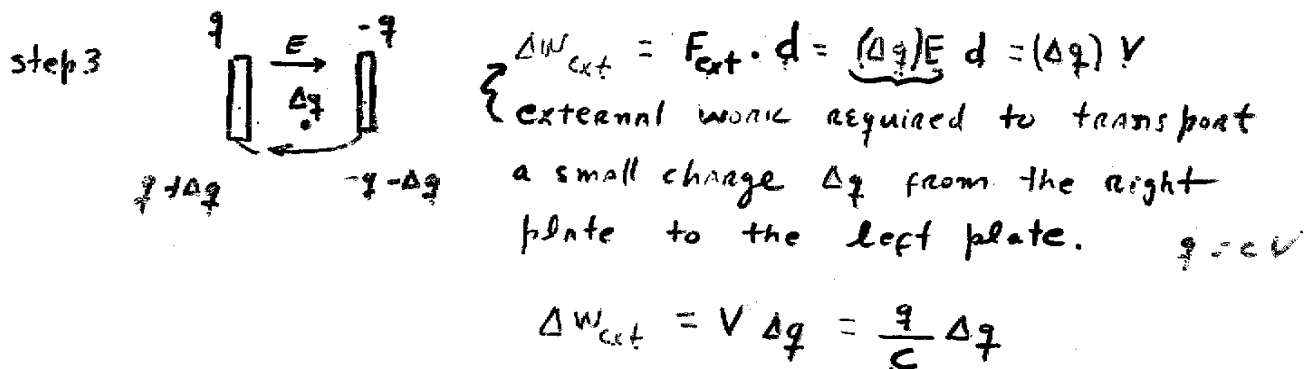 step 3
q E -q
Δq
q+Δq -q-Δq
ΔW_ext = F_ext · d = (Δq)E d = (Δq) V
external work required to transport
a small charge Δq from the right
plate to the left plate. q = cV
ΔW_ext = V Δq = q/C Δq